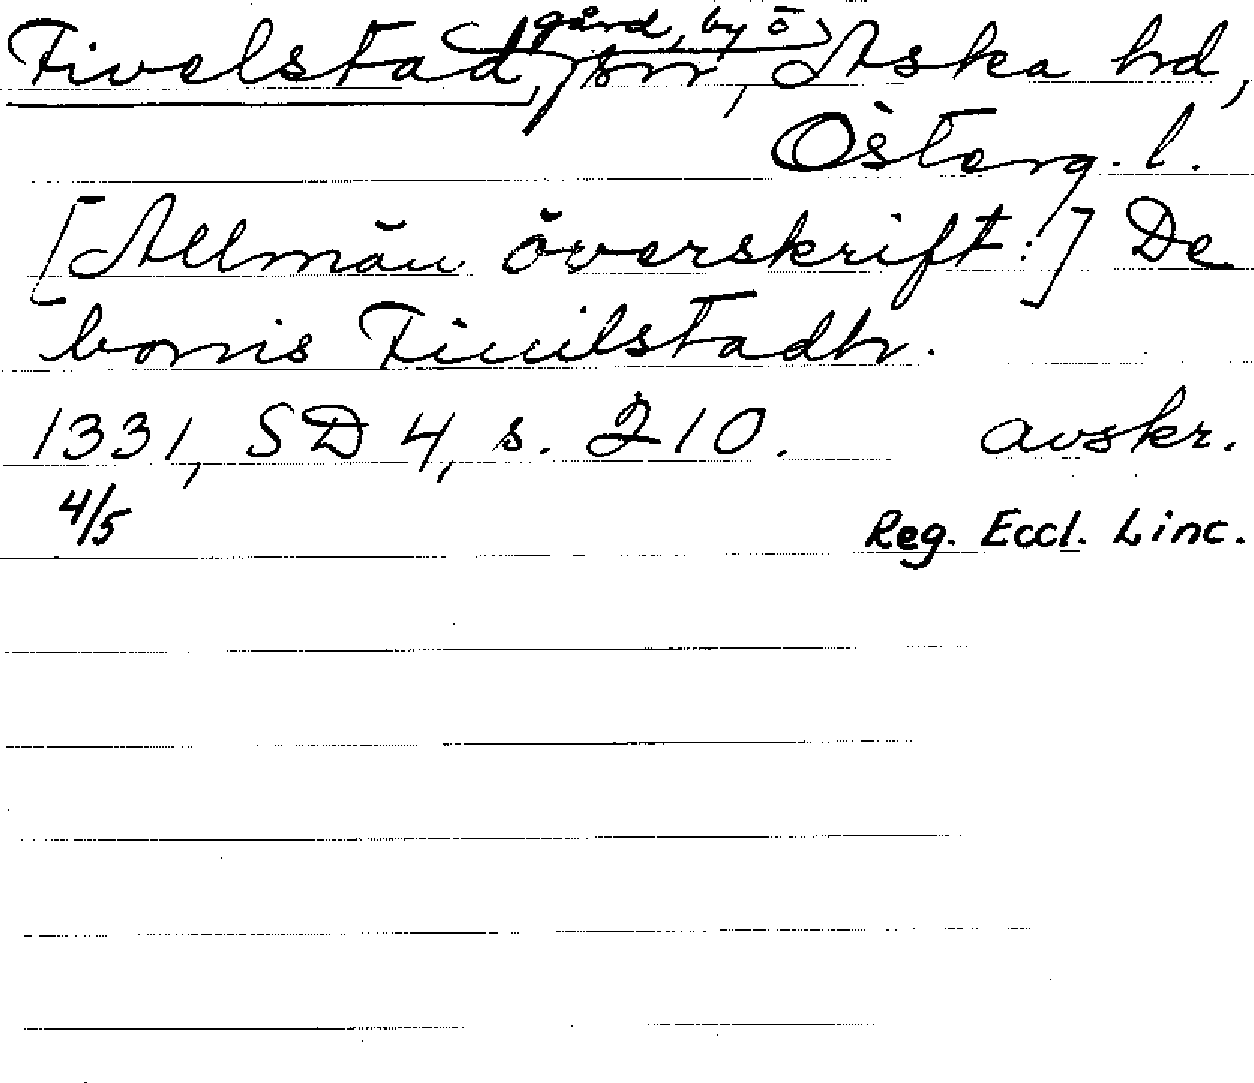 Fivelstad, (gård, by o) sn, Aska hd,
Österg. l.
[Allmän överskrift:] De
bonis Fiuilstadh.
1331, SD 4, s. 210. avskr.
4/5 Reg. Eccl. Linc.